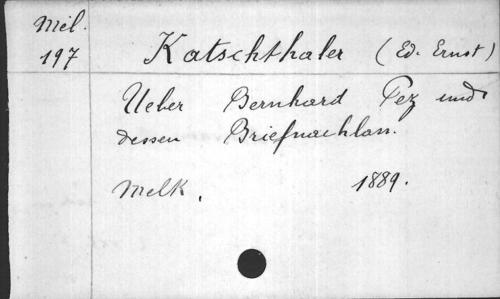 Mél.
197
Katschthaler (Ed. Ernst)
Ueber Bernhard Pez und
dessen Briefnachlass.
Melk. 1889.